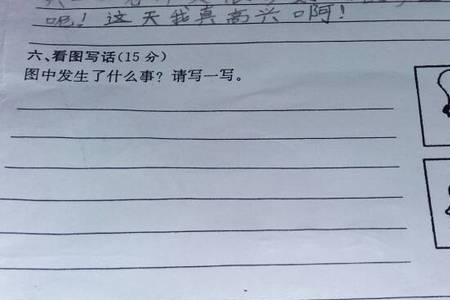 呢！这天我真高兴啊！
六、看图写话(15分)
图中发生了什么事？请写一写。